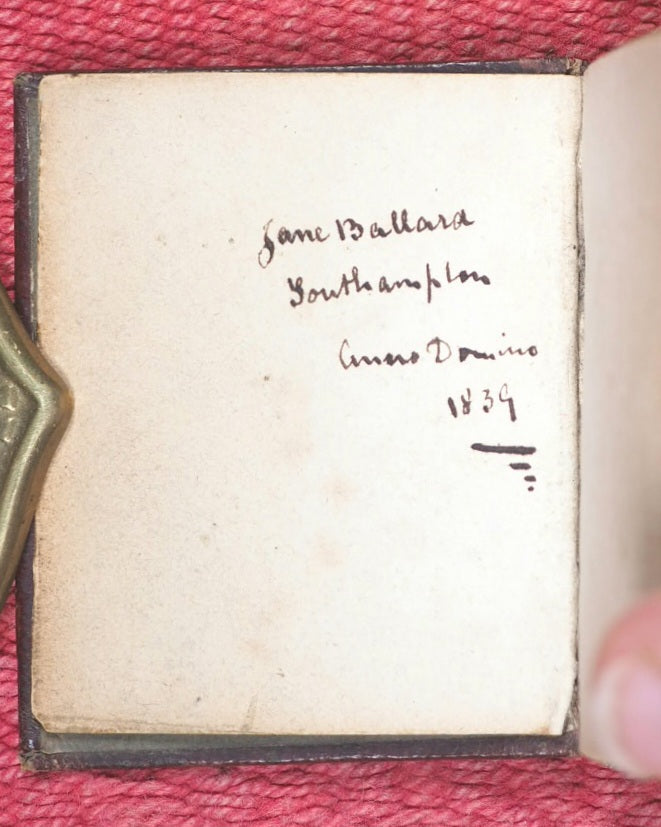 Jane Ballard
Southampton
Anno Domino
1839